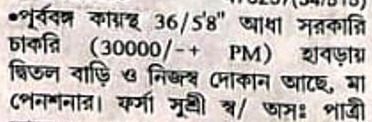 •পূর্ববঙ্গ কায়স্থ 36/5'8" আধা সরকারি
চাকরি (30000/-+ PM) হাবড়ায়
দ্বিতল বাড়ি ও নিজস্ব দোকান আছে, মা
পেনশনার। ফর্সা সুশ্রী স্ব/ অসঃ পাত্রী